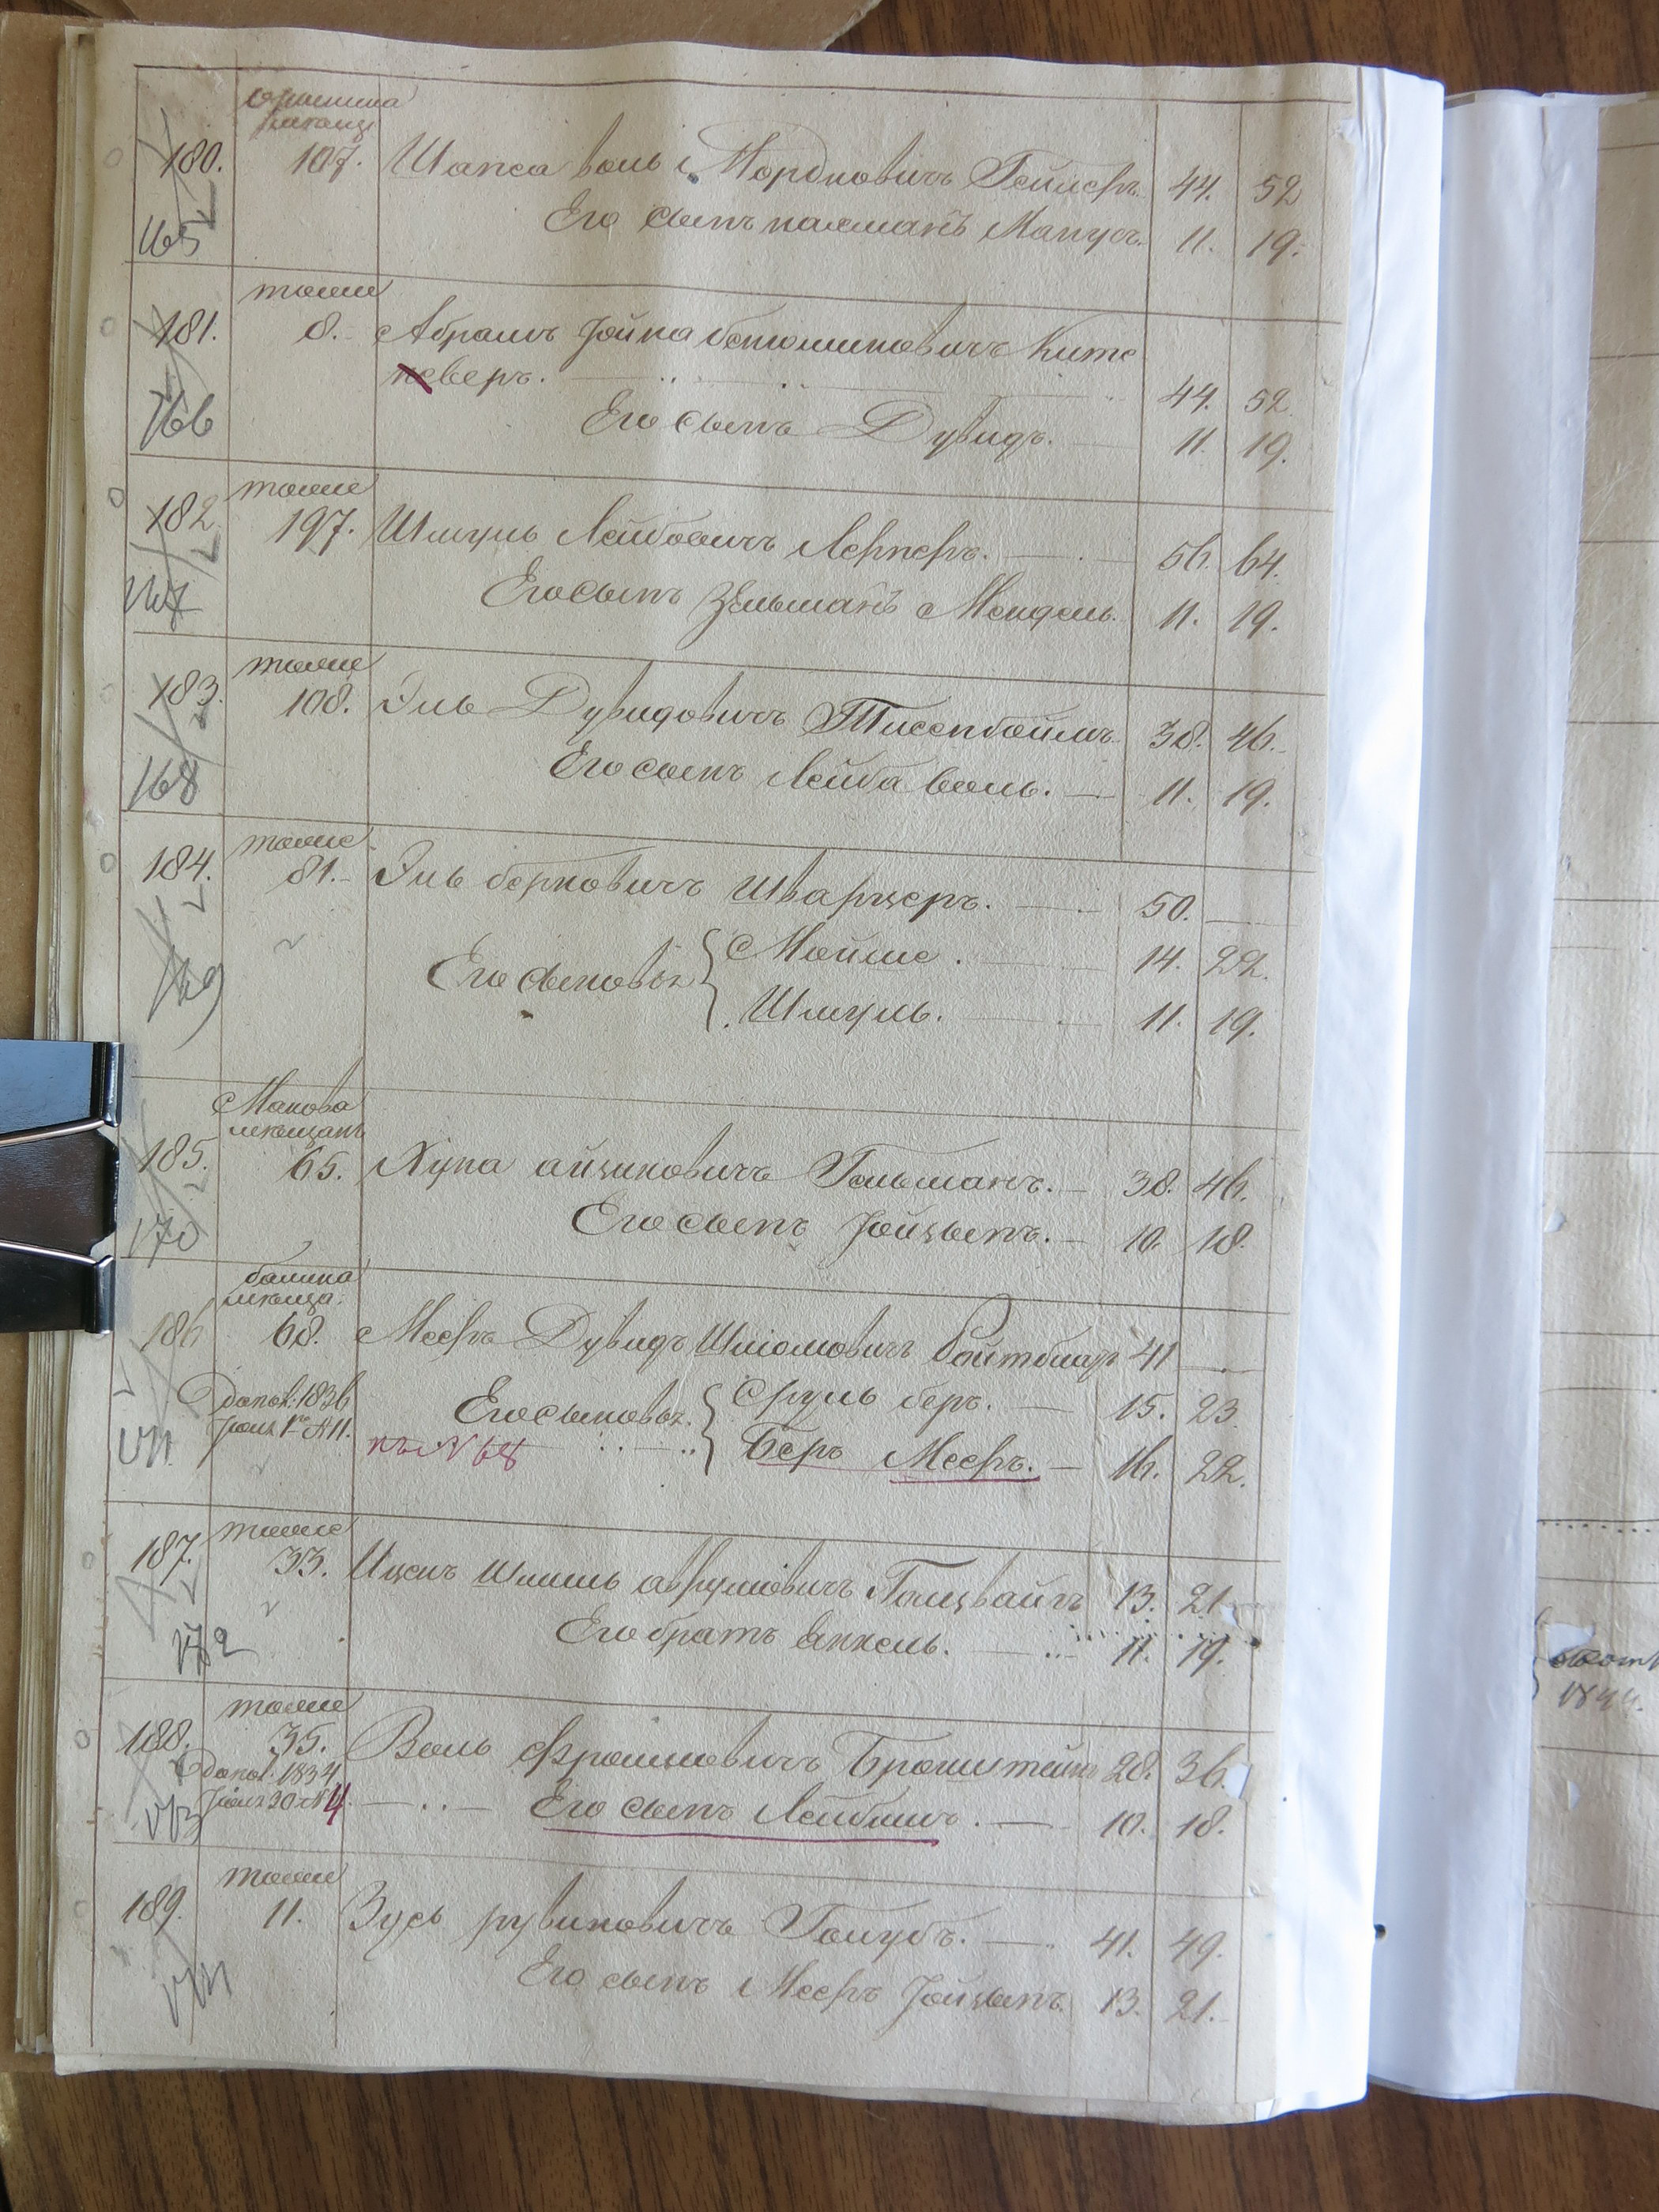 180. 107. Шапса воль Мордковичъ Гейлеръ. 44. 52
Его сынъ калманъ Манусъ. 11. 19.
165
тоже
181. 8. Абрамъ Іойна бенюминовичъ Китс
неверъ. 44. 52.
166
Его сынъ Дувидъ. 11. 19.
тоже
182 197. Шмуль Лейбовичъ Лернеръ. 56. 64.
167
Его сынъ Зельманъ Мендель. 11. 19.
тоже
183. 108. Эль Дувидовичъ Тисенбоймъ. 38. 46.
168
Его сынъ Лейба воль. 11. 19.
тоже
184. 81. Эль берковичъ Шварцеръ. 50.
169
Его сыновья Мойше. 14. 22.
Шмуль. 11. 19.
Макова
мещанъ
185. 65. Хуна айзиковичъ Гельманъ. 38. 46.
170
Его сынъ Іойзынъ. 10. 18.
мещa.
186 68. Мееръ Дувидъ Шліомовичъ 41
допол: 1836
171
Его сыновья Сруль беръ. 15. 23.
къ № 68 Беръ Мееръ. 16. 22.
тоже
187. 33. Ицекъ Шмиль аврумовичъ Голцвайгъ 13. 21
172
Его братъ Янкель. 11. 19.
тоже
188. 35. Воль Фроимовичъ Бронштейнъ 28. 36.
допол: 1834
Іюля 30 № 4. Его сынъ Лейбишъ. 10. 18.
173
тоже
189. 11. Зусь рувиновичъ Голубъ. 41. 49.
174
Его сынъ Мееръ Іойзынъ. 13. 21.